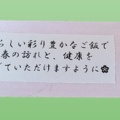 らしい彩り豊かなご飯で
春の訪れと、健康を
ていただけますように